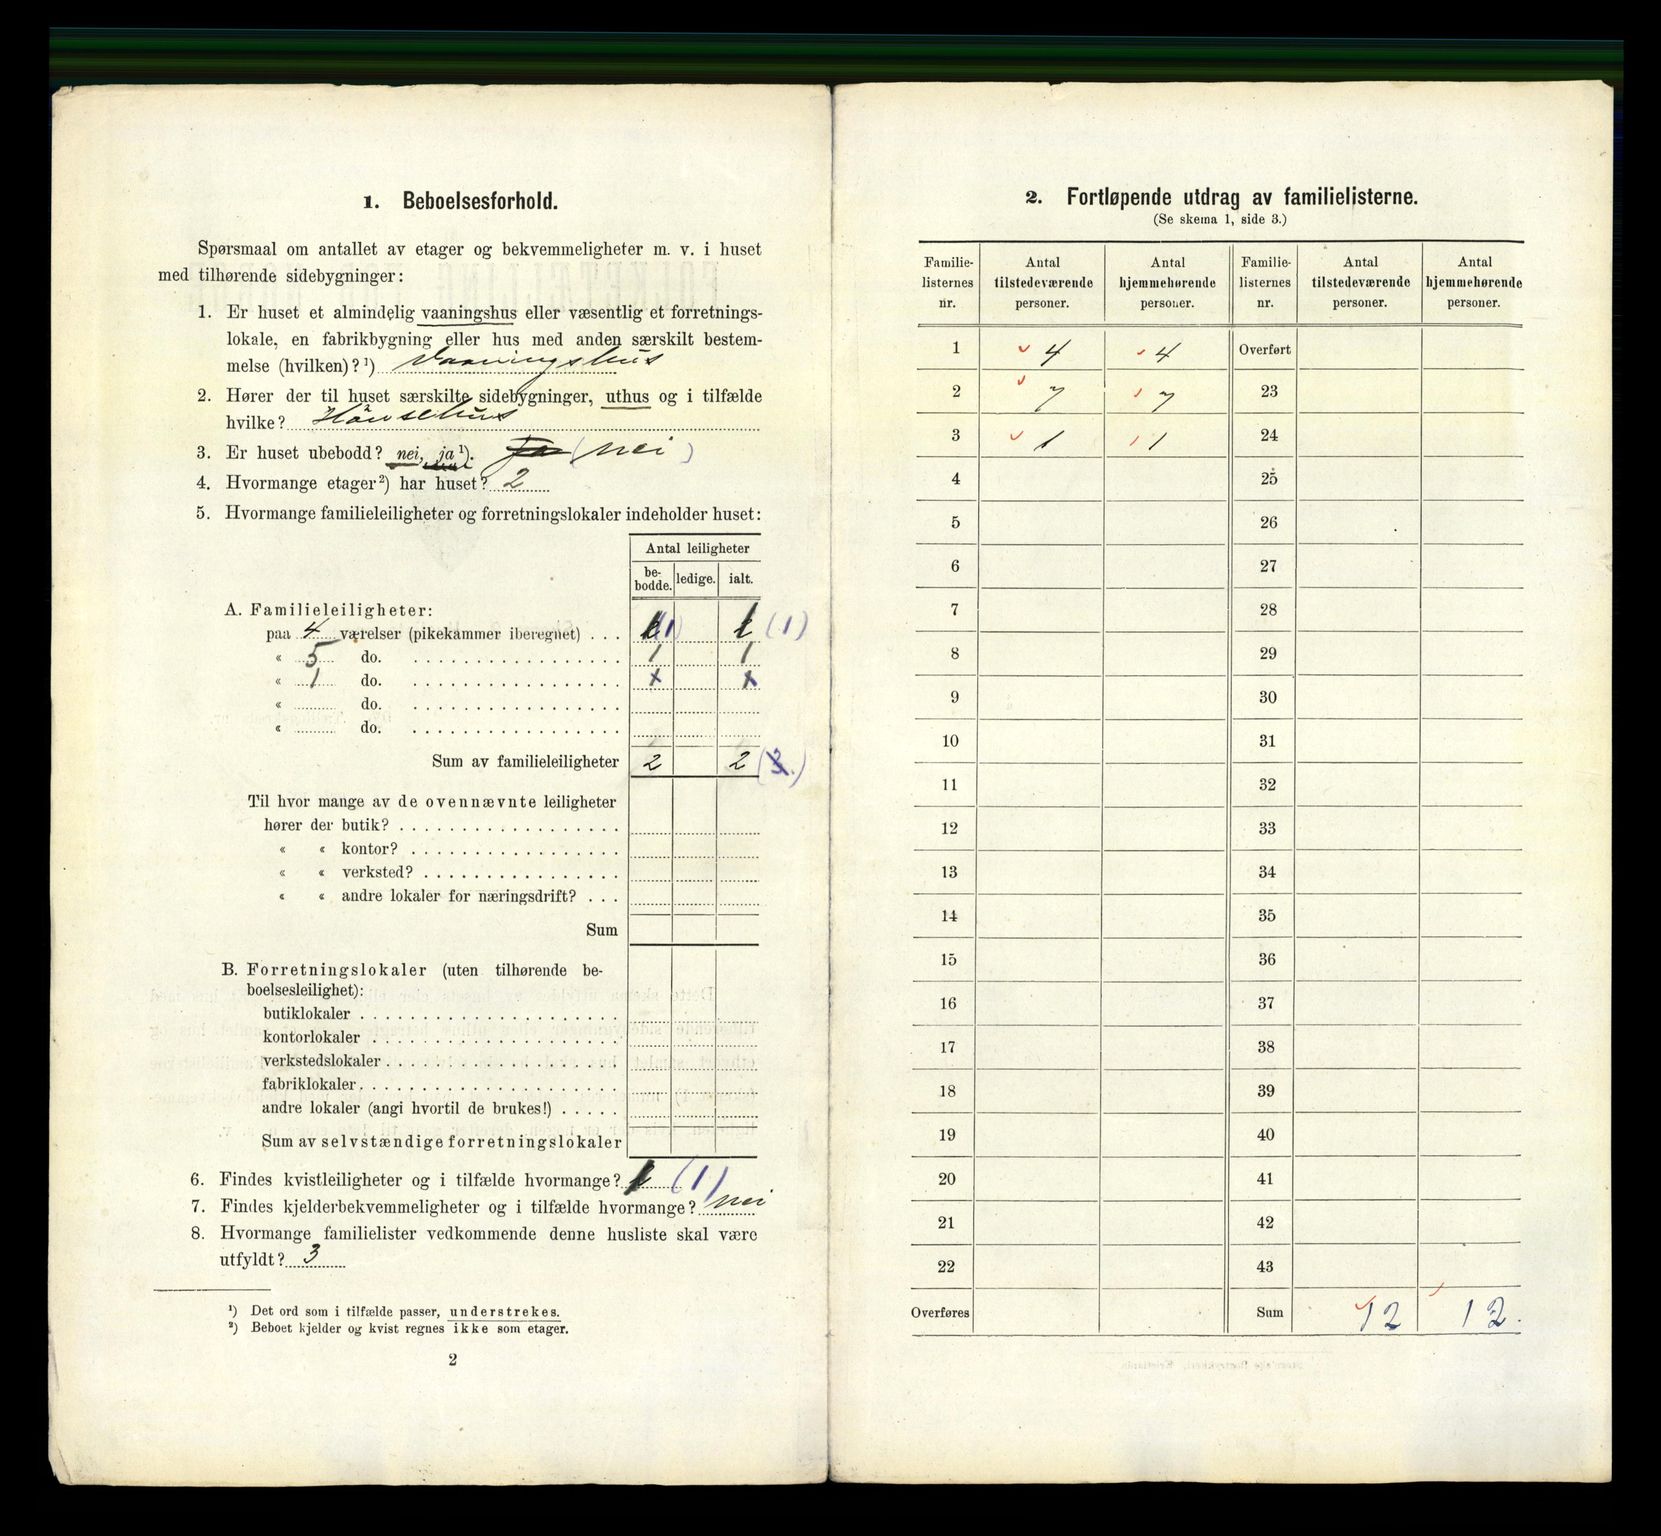 1. Beboelsesforhold.
Spørsmaal om antallet av etager og bekvemmeligheter m. v. i huset
med tilhørende sidebygninger:
1. Er huset et almindelig vaaningshus eller væsentlig et forretnings-
lokale, en fabrikbygning eller hus med anden særskilt bestem-
melse (hvilken)?¹) Vaaningshus
2. Hører der til huset særskilte sidebygninger, uthus og i tilfælde
hvilke? Hönsehus
3. Er huset ubebodd? nei, ja¹). Ja (nei)
4. Hvormange etager²) har huset? 2
5. Hvormange familieleiligheter og forretningslokaler indeholder huset:
Antal leiligheter
be-bodde. ledige. ialt.
A. Familieleiligheter:
paa 4 værelser (pikekammer iberegnet) . . . (1) (1)
« 5 do. 1 1
« 1 do. x x
« do.
« do.
Sum av familieleiligheter 2 2
Til hvor mange av de ovennævnte leiligheter
hører der butik?
« « kontor?
« « verksted?
« « andre lokaler for næringsdrift?
Sum
B. Forretningslokaler (uten tilhørende be-
boelsesleilighet):
butiklokaler
kontorlokaler
verkstedslokaler
fabriklokaler
andre lokaler (angi hvortil de brukes!)
Sum av selvstændige forretningslokaler
6. Findes kvistleiligheter og i tilfælde hvormange? (1)
7. Findes kjelderbekvemmeligheter og i tilfælde hvormange? nei
8. Hvormange familielister vedkommende denne husliste skal være
utfyldt? 3
¹) Det ord som i tilfælde passer, understrekes.
²) Beboet kjelder og kvist regnes ikke som etager.
2
2. Fortløpende utdrag av familielisterne.
(Se skema 1, side 3.)
Familie-listernes nr. Antal tilstedeværende personer. Antal hjemmehørende personer. Familie-listernes nr. Antal tilstedeværende personer. Antal hjemmehørende personer.
1 4 4 Overført
2 7 7 23
3 1 1 24
4 25
5 26
6 27
7 28
8 29
9 30
10 31
11 32
12 33
13 34
14 35
15 36
16 37
17 38
18 39
19 40
20 41
21 42
22 43
Overføres Sum 12 12.